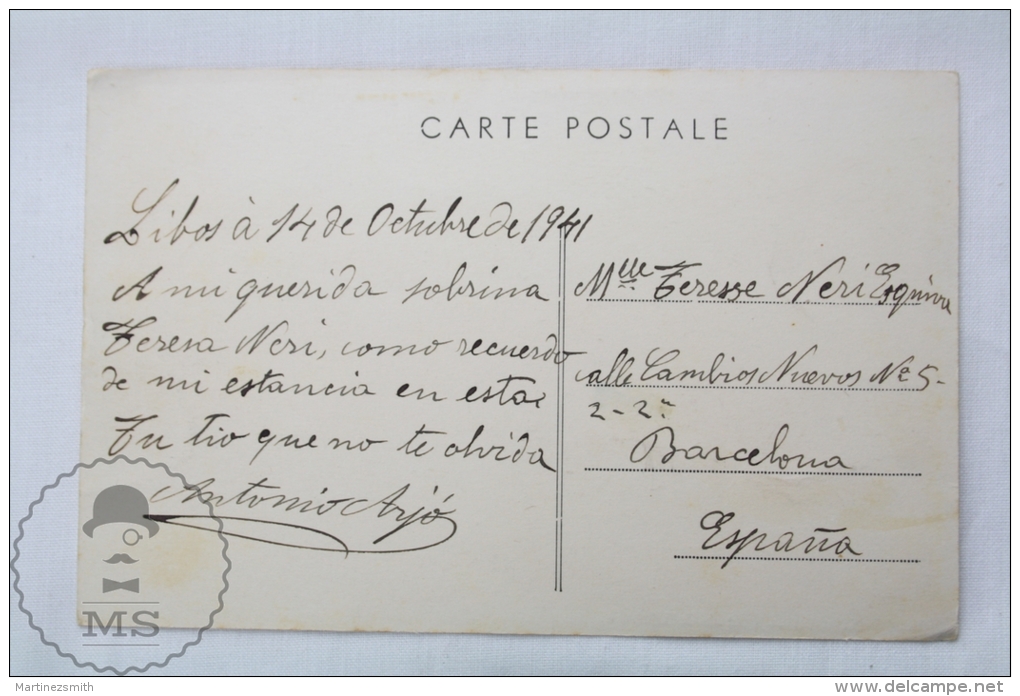 CARTE POSTALE
Libos à 14 de Octubre de 1941
A mi querida sobrina
Teresa Neri, como recuerdo
de mi estancia en esta.
Tu tio que no te olvida
Antonio Arjó
Mlle Teresse Neri Esquiva
calle Cambios Nuevos Nº 5-
2-2ª
Barcelona
España
MS
Martinezsmith
www.delcampe.net